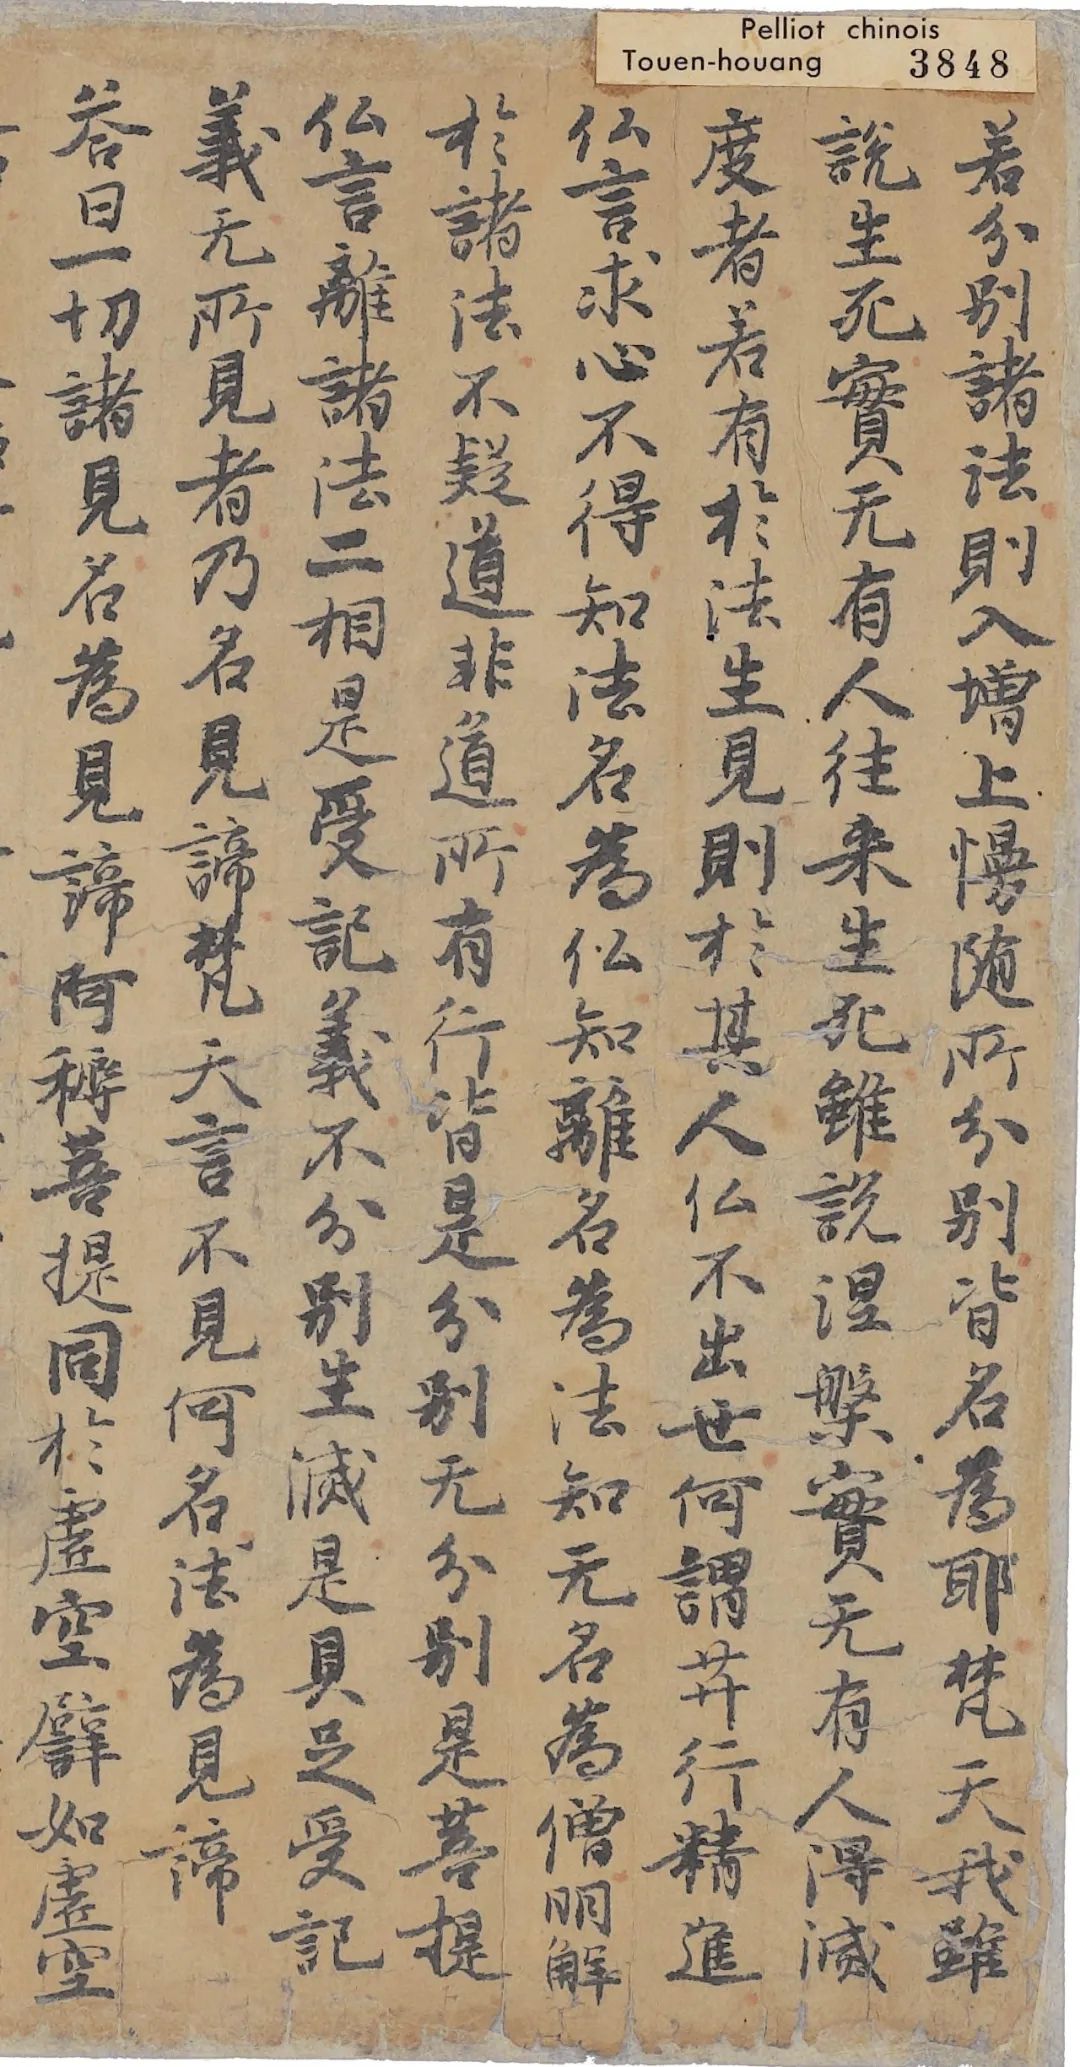 Pelliot chinois
Touen-houang 3848
若分別諸法則入增上慢随所分别皆名為耶梵天我雖
說生死實无有人往来生死雖說涅槃實无有人得滅
度者若有於法生見則於其人仏不出世何謂䒑行精進
仏言求心不得知法名為仏知離名為法知无名為僧明解
於諸法不疑道非道所有行皆是分别无分别是菩提
仏言離諸法二相是受記義不分别生滅是具足受記
義无所見者乃名見諦梵天言不見何名法為見諦
荅曰一切諸見名為見諦阿稱菩提同於虛空譬如虛空